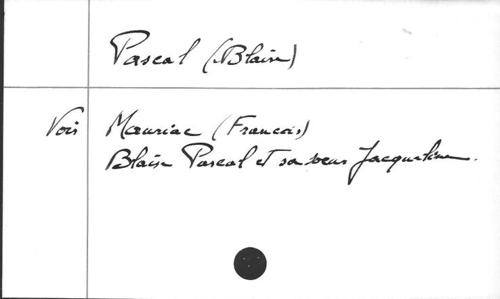 Pascal (Blaise)
Voir Mauriac (François)
Blaise Pascal et sa soeur Jacqueline.